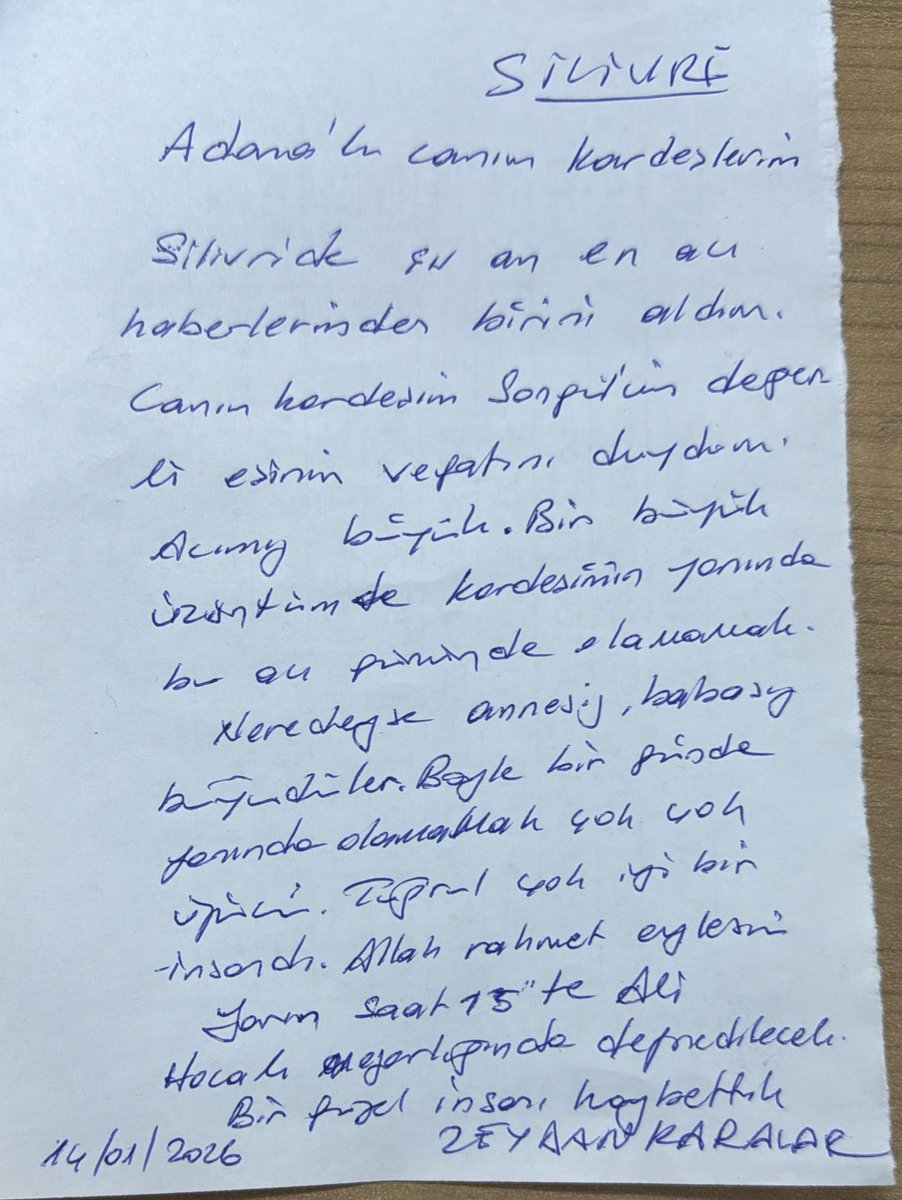 SİLİVRİ
Adana'lı canım kardeşlerim
Silivride şu an en acı
haberlerinden birini aldım.
Canım kardeşim Songül'ün değer-
li eşinin vefatını duydum.
Acımız büyük. Bir büyük
üzüntümde kardeşimin yanında
bu acı gününde olamamak.
Neredeyse annesiy, babasıy
büyüdüler. Böyle bir günde
yanında olamamak çok çok
üzücü. Tuğrul çok iyi bir
insandı. Allah rahmet eylesin
Yarın saat 15'te Ali
Hocalı mezarlığında defnedilecek.
Bir güzel insanı kaybettik
14/01/2026 ZEYDAN KARALAR